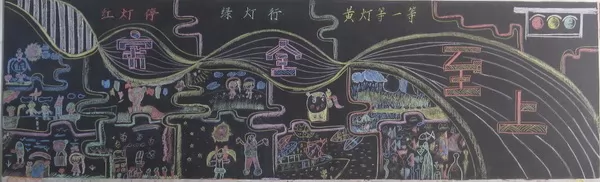 红灯停 绿灯行 黄灯等一等
安全至上